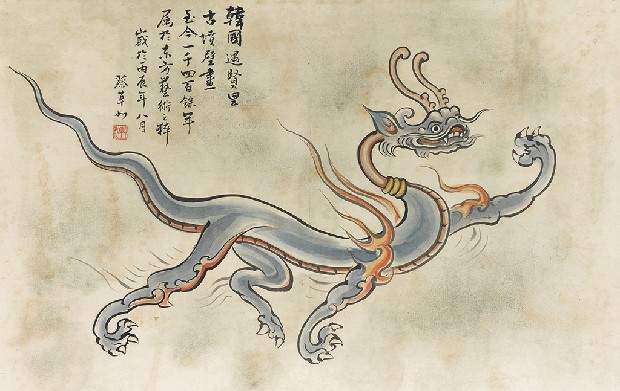 韓國遇賢里
古墳壁畫
至今一千四百餘年
屬於東方藝術之粹
歲於丙辰年八月
蔡草如